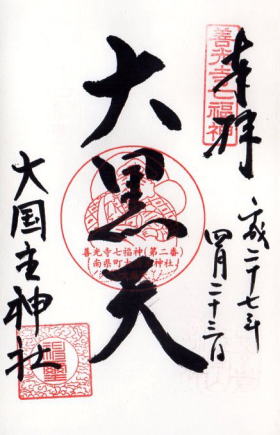 奉拝
善光寺七福神
平成二十七年
四月二十三日
大黒天
善光寺七福神(第二番)
南県町大 神社
大国主神社